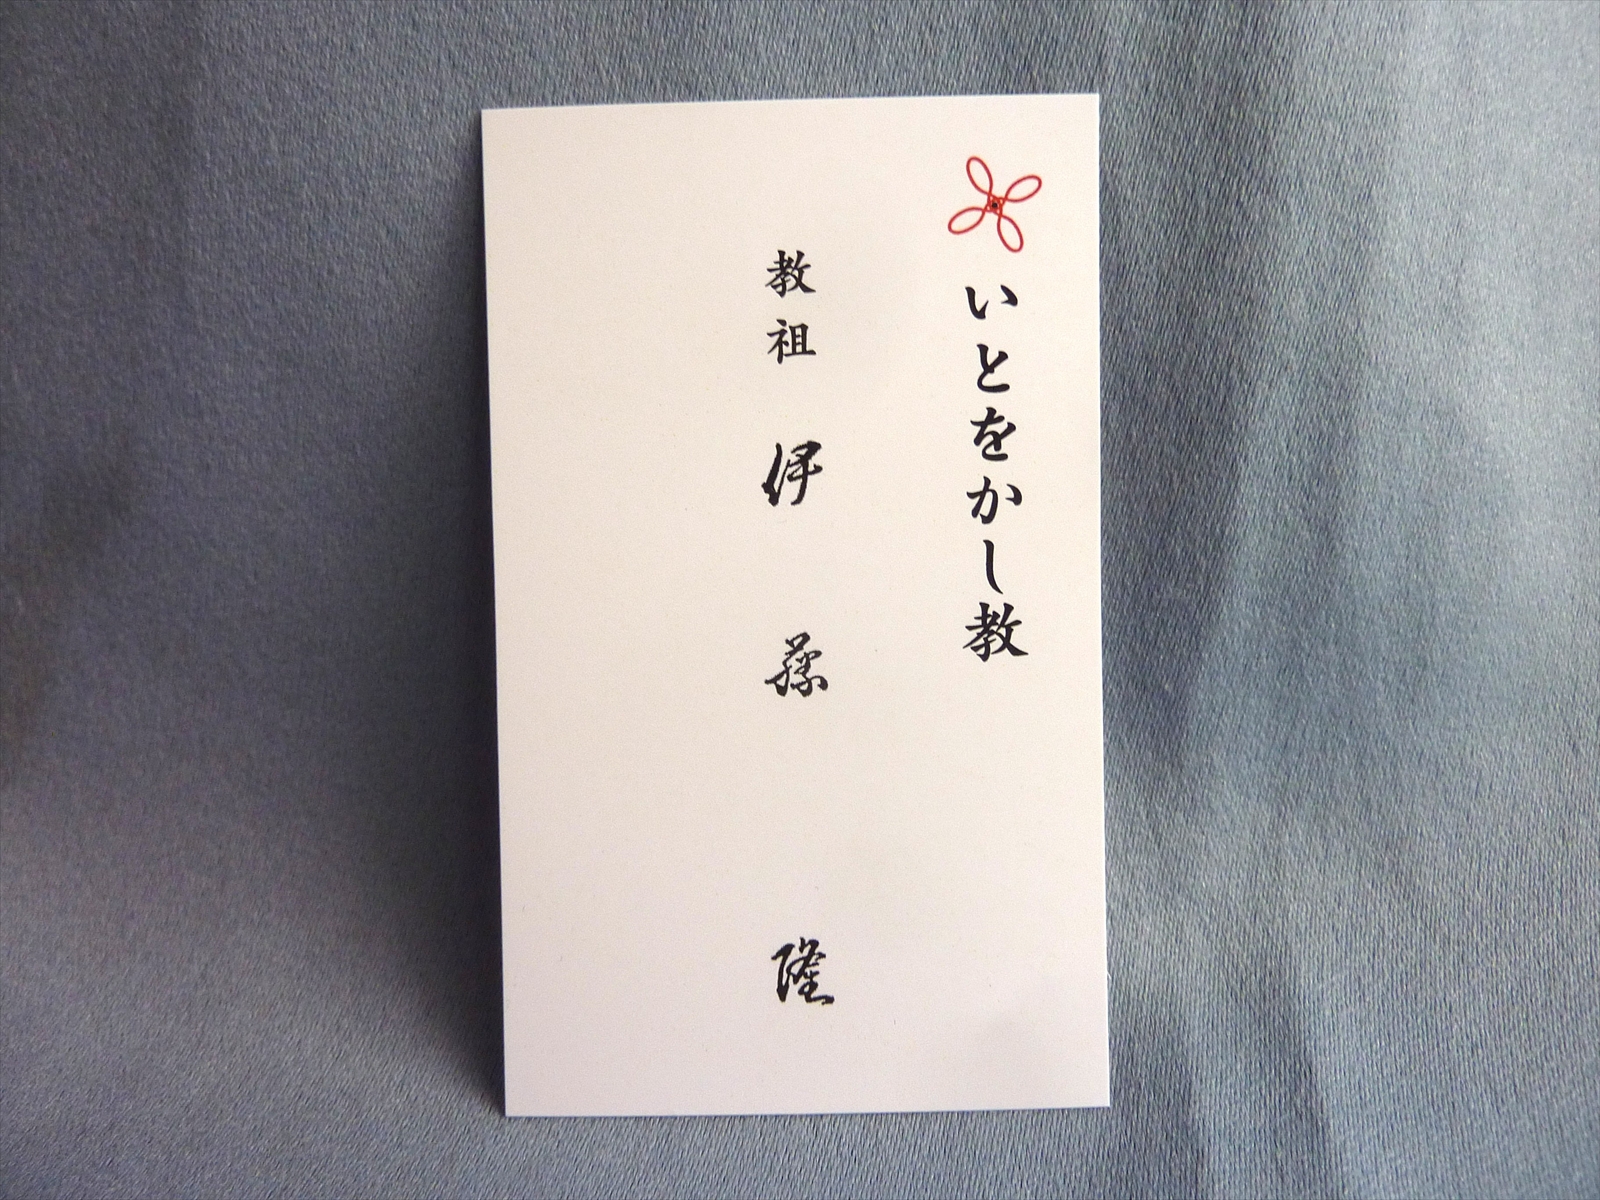 いとをかし教
教祖 伊藤 隆